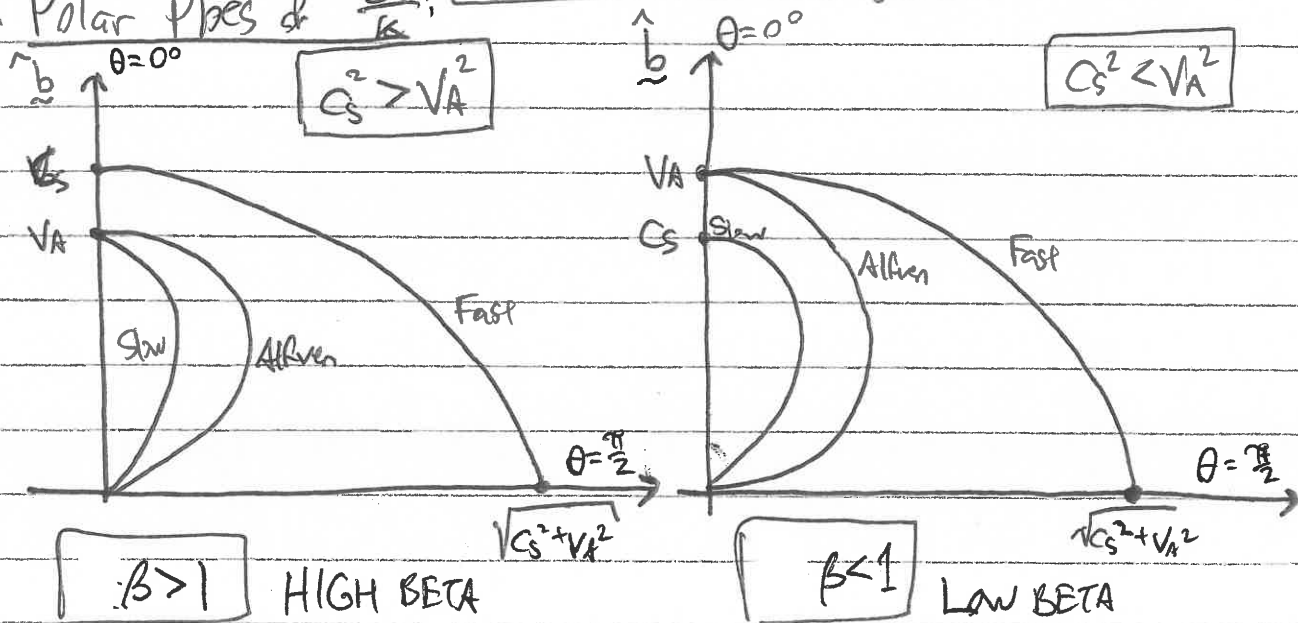 Polar Plots of ω/k,
b̂ θ=0° Cs² > VA²
Cs
VA
Slow
Alfven
Fast
θ=π/2
√Cs²+VA²
β>1 HIGH BETA
b̂ θ=0° Cs² < VA²
VA
Cs
Slow
Alfven
Fast
θ=π/2
√Cs²+VA²
β<1 LOW BETA